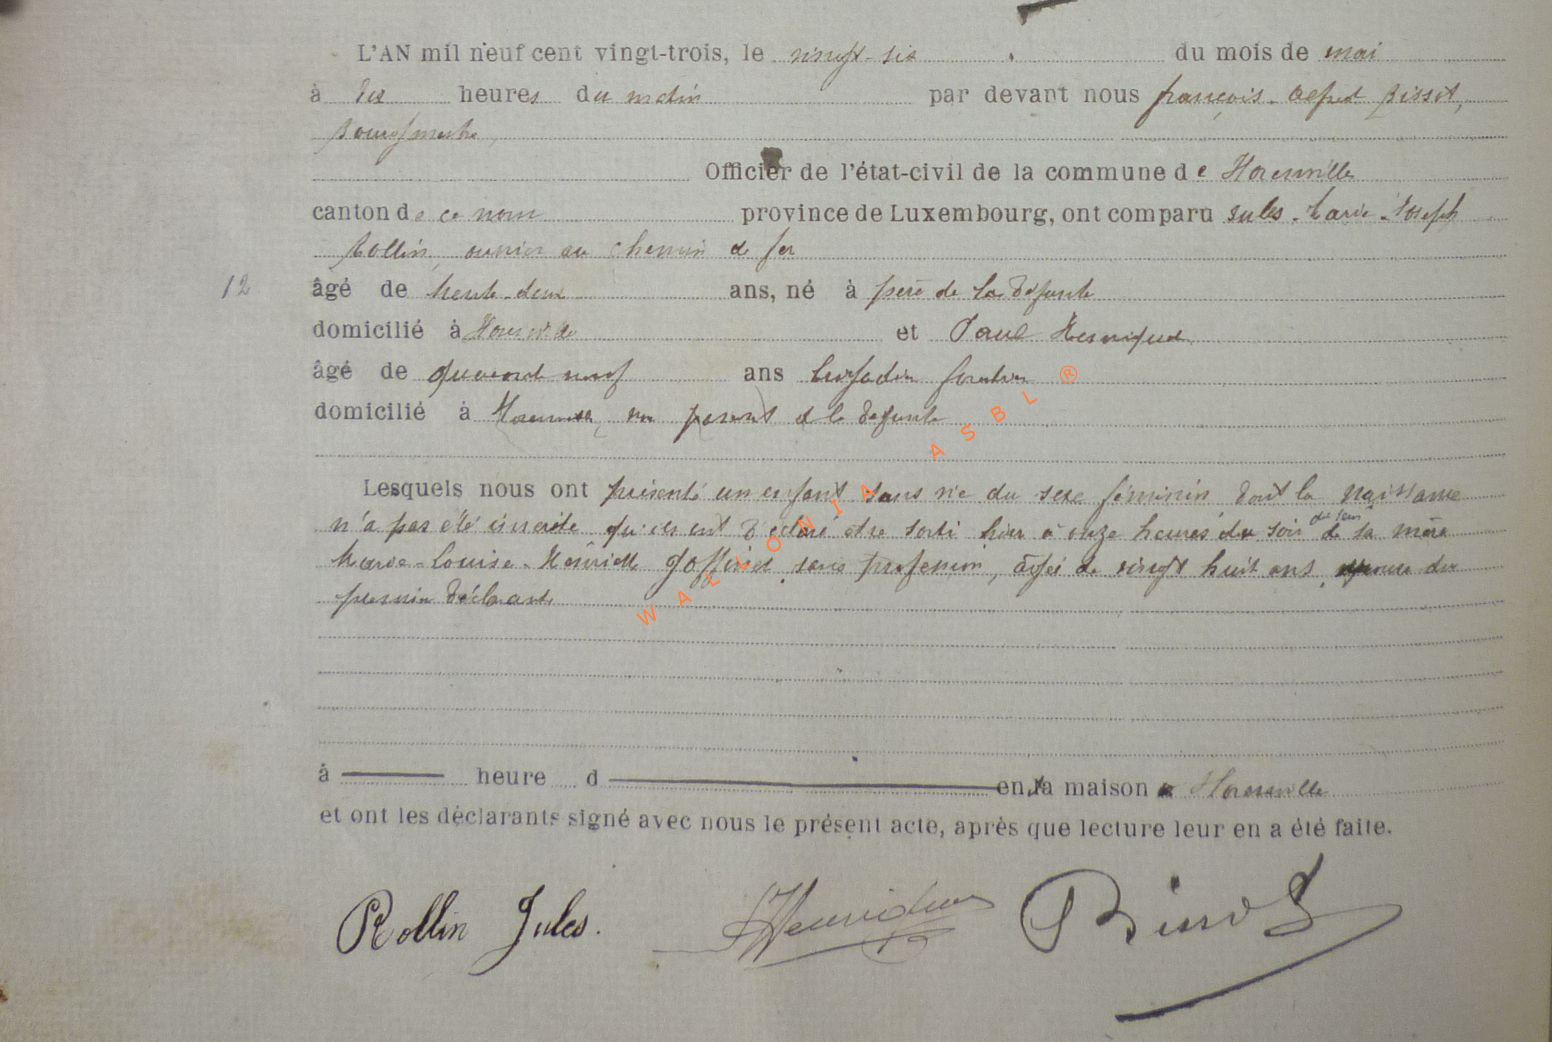 L'AN mil neuf cent vingt-trois, le vingt-six du mois de mai
à dix heures du matin par devant nous françois-Alfred Bissot,
Bourgmestre,
Officier de l'état-civil de la commune de
canton de ce nom province de Luxembourg, ont comparu Jules-Marie-Joseph
Rollin, ouvrier au chemin de fer
12 âgé de trente-deux ans, né à père de la défunte
domicilié à et Paul Henriquet
âgé de quarante neuf ans brigadier forestier
domicilié à non parent de la défunte
Lesquels nous ont présenté un enfant sans vie du sexe féminin dont la naissance
n'a pas été inscrite qu'ils ont déclaré être sorti hier à onze heures du soir du sein de sa mère
Marie-Louise-Henriette Goffinet, sans profession, âgée de vingt huit ans, épouse du
premier déclarant
à heure d en la maison
et ont les déclarants signé avec nous le présent acte, après que lecture leur en a été faite.
Rollin Jules. PHenriquet Bissot
WALLONIA ASBL ®